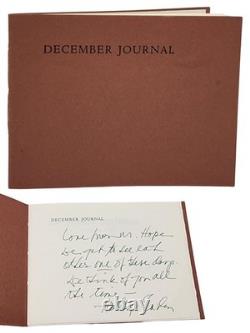 DECEMBER JOURNAL
DECEMBER JOURNAL
Love from M. Hope
we get to see each
other one of these days.
We think of you all
the time —